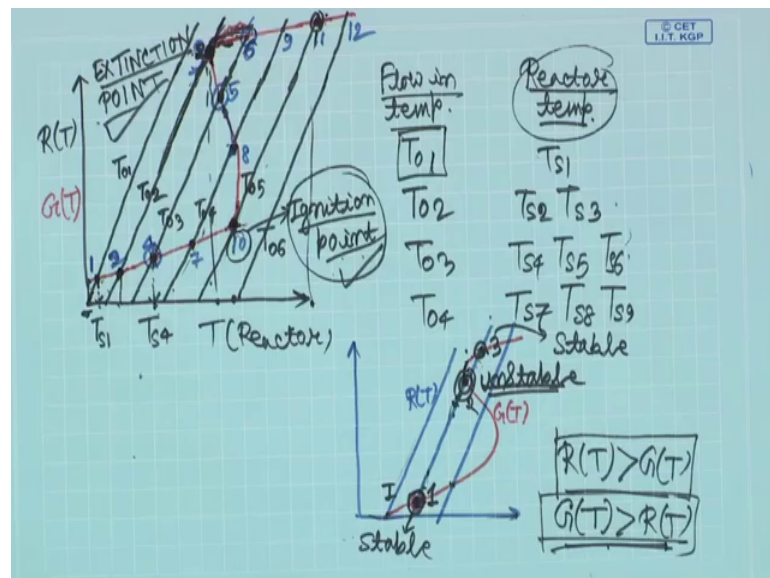 © CET
I.I.T. KGP
EXTINCTION
POINT
R(T)
G(T)
T01
T02
T03
T04
T05
T06
1
2
4
7
10
3
5
6
8
9
11
12
Ignition
point
TS1
TS4
T (Reactor)
Flow in
temp.
Reactor
temp.
T01
TS1
T02
TS2 TS3
T03
TS4 TS5 TS6
T04
TS7 TS8 TS9
R(T)
G(T)
3
Stable
unstable
2
I
1
Stable
R(T) > G(T)
G(T) > R(T)